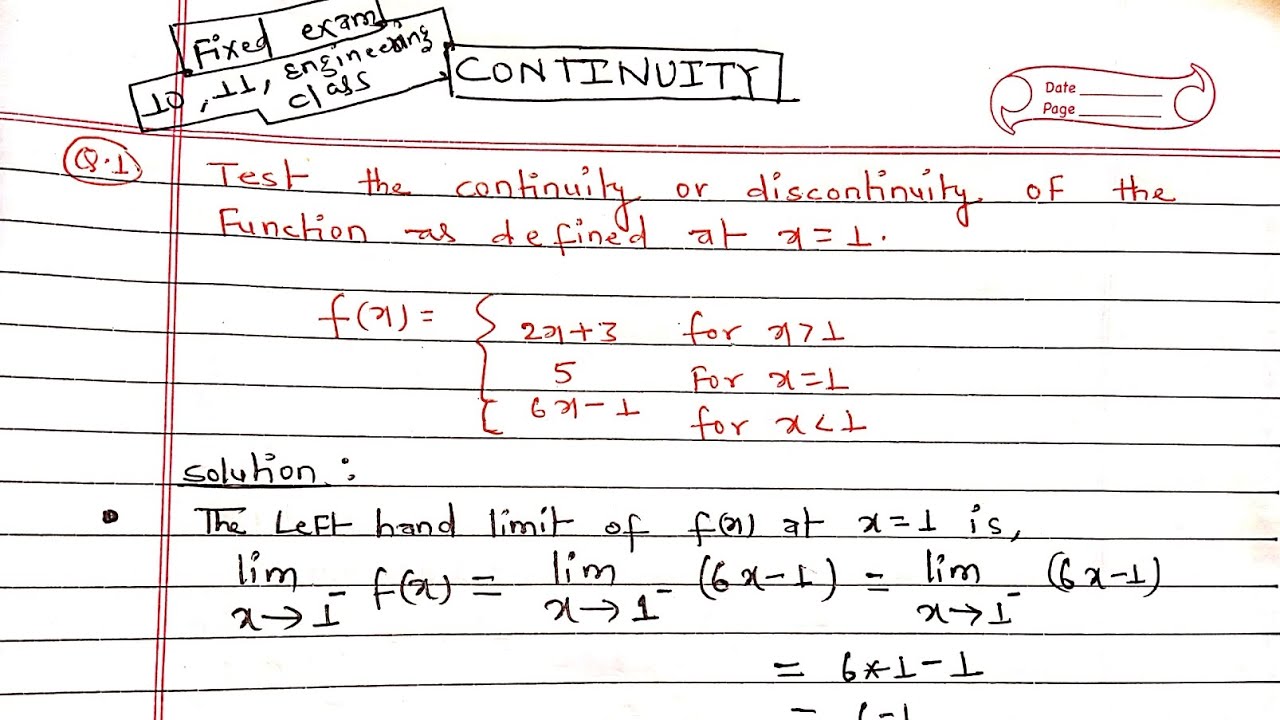 Fixed exam
10, 11, engineering
class
CONTINUITY
Date
Page
Q.1
Test the continuity or discontinuity of the
Function as defined at x = 1.
f(x) = { 2x+3 for x>1
5 For x=1
6x-1 for x<1
solution :
• The Left hand limit of f(x) at x=1 is,
lim f(x) = lim (6x-1) = lim (6x-1)
x→1⁻ x→1⁻ x→1⁻
= 6*1-1
= 6-1